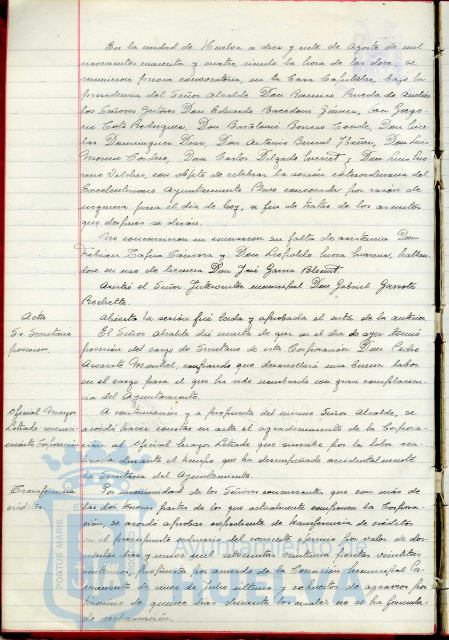 En la ciudad de Huelva a diez y siete de Agosto de mil
novecientos cuarenta y cuatro, siendo la hora de las doce, se
reunieron previa convocatoria, en la Casa Capitular, bajo la
presidencia del Señor Alcalde Don Ramiro Pineda de
los Señores Gestores Don Eduardo Bacedoni Don Grego-
rio Coto Rodriguez, Don Bartolomé Borrero Conde, Don
Dominguez Diaz, Don Antonio Bernal Don Luis
Moreno Don Carlos Delgado y Don Luis
con objeto de celebrar la sesión extraordinaria del
Excelentísimo Ayuntamiento Pleno convocada por razon de
urgencia para el dia de hoy, a fin de tratar de los asuntos
que despues se dirán.
No concurrieron ni excusaron su falta de asistencia Don
Fabian y Don Leopoldo hallan-
dose en uso de licencia Don José Garcia
Asistió el Señor Interventor municipal Don Gabriel Garrote
Acta
Abierta la sesión fué leida y aprobada el acta de la anterior.
Sr. Secretario
posesion.
El Señor Alcalde dió cuenta de que en el dia de ayer tomó
posesion del cargo de Secretario de esta Corporación Don Pedro
Montiel, confiando que desarrollará una buena labor
en el cargo para el que ha sido nombrado con gran complacen-
cia del Ayuntamiento.
Oficial Mayor
Letrado
Corporación
A continuación y a propuesta del mismo Señor Alcalde, se
acordó hacer constar en acta el agradecimiento de la Corpora-
ción al Oficial Mayor Letrado que suscribe por la labor rea-
lizada durante el tiempo que ha desempeñado accidentalmente
la Secretaria del Ayuntamiento.
Transferencia
créditos.
Por unanimidad de los Señores concurrentes, que son más de
las dos terceras partes de los que actualmente componen la Corpora-
ción, se acordó aprobar expediente de transferencia de créditos
en el presupuesto ordinario del corriente ejercicio por valor de dos-
cientas diez y nueve mil setecientas pesetas
centimos, propuesta por acuerdo de la Comisión Municipal Per-
manente de once de Julio último y expuesto de agravios por
termino de quince dias durante los cuales no se ha formula-
do reclamación.
PORTUS MARIS